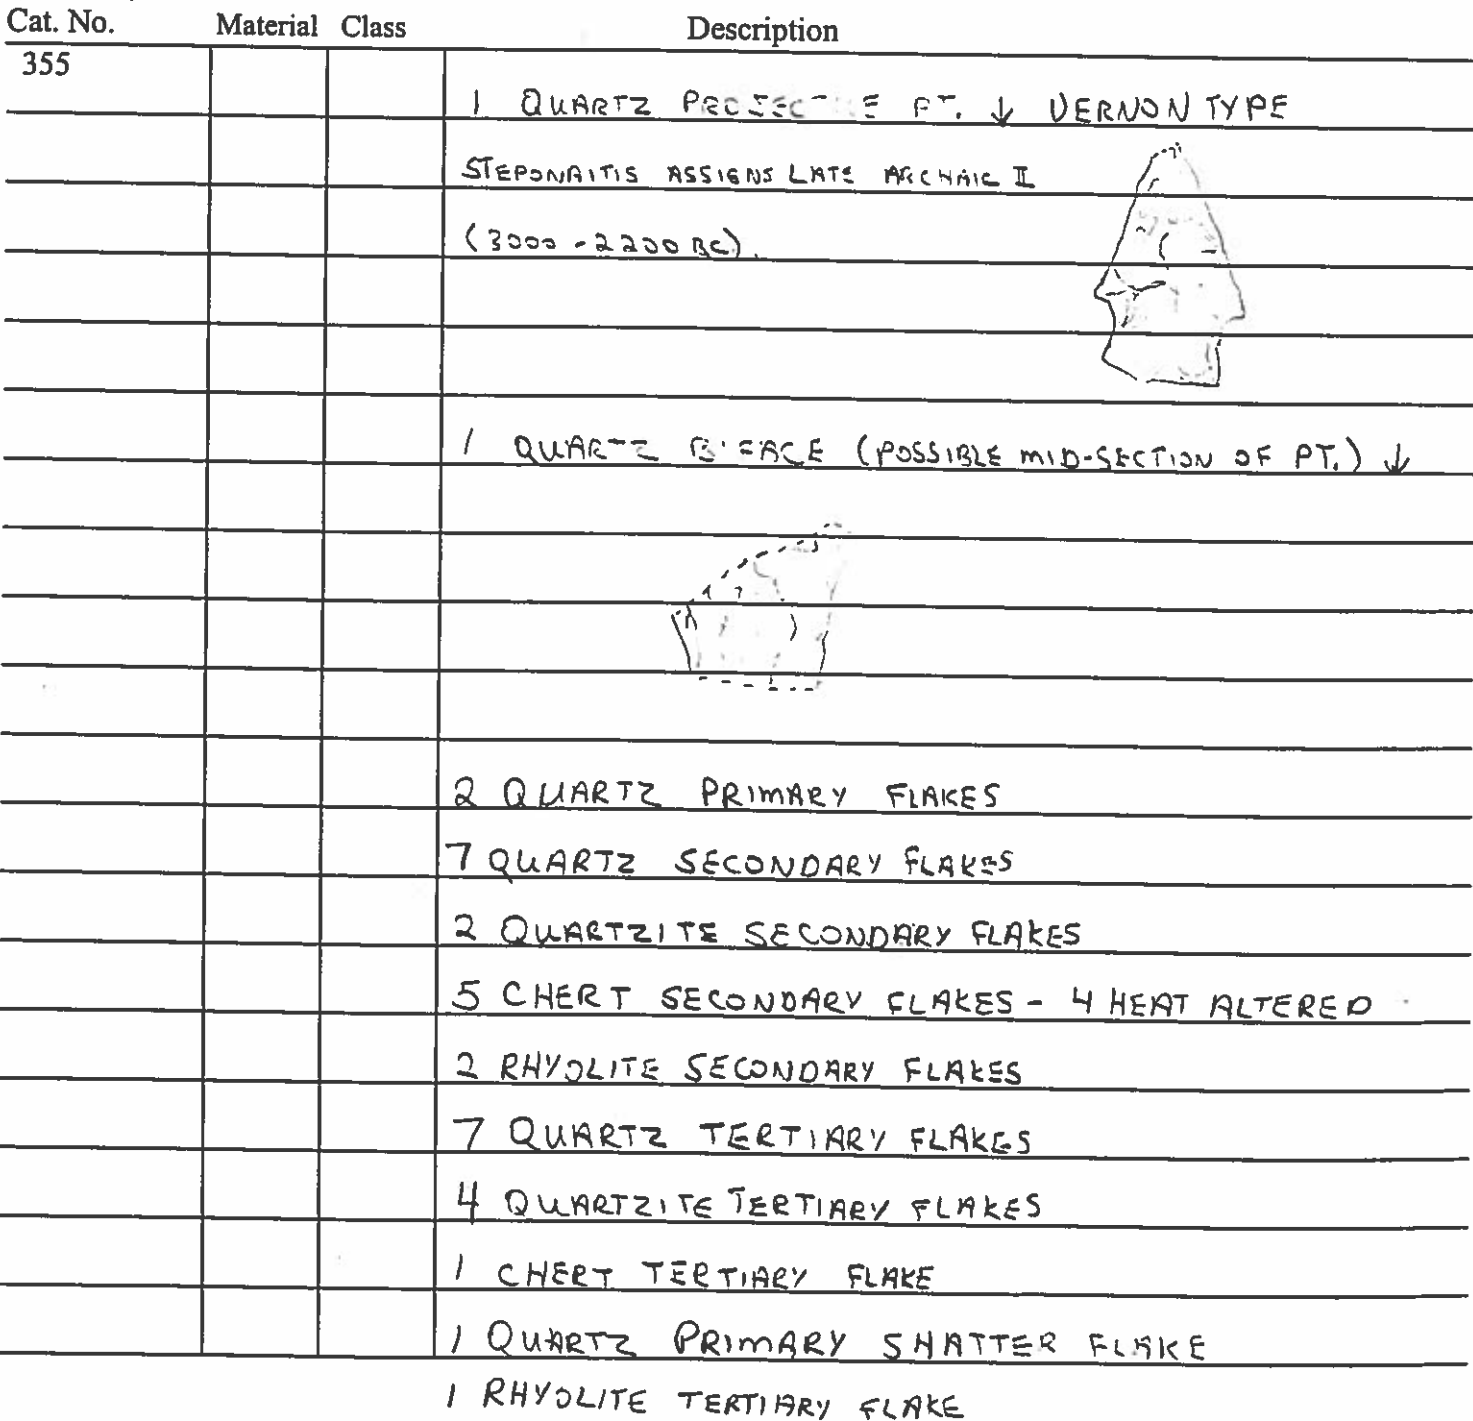 Cat. No. Material Class Description
355
1 QUARTZ PROJECTILE PT. ↓ VERNON TYPE
STEPONAITIS ASSIGNS LATE ARCHAIC II
(3000 - 2200 BC).
1 QUARTZ BIFACE (POSSIBLE MID-SECTION OF PT.) ↓
2 QUARTZ PRIMARY FLAKES
7 QUARTZ SECONDARY FLAKES
2 QUARTZITE SECONDARY FLAKES
5 CHERT SECONDARY FLAKES - 4 HEAT ALTERED
2 RHYOLITE SECONDARY FLAKES
7 QUARTZ TERTIARY FLAKES
4 QUARTZITE TERTIARY FLAKES
1 CHERT TERTIARY FLAKE
1 QUARTZ PRIMARY SHATTER FLAKE
1 RHYOLITE TERTIARY FLAKE